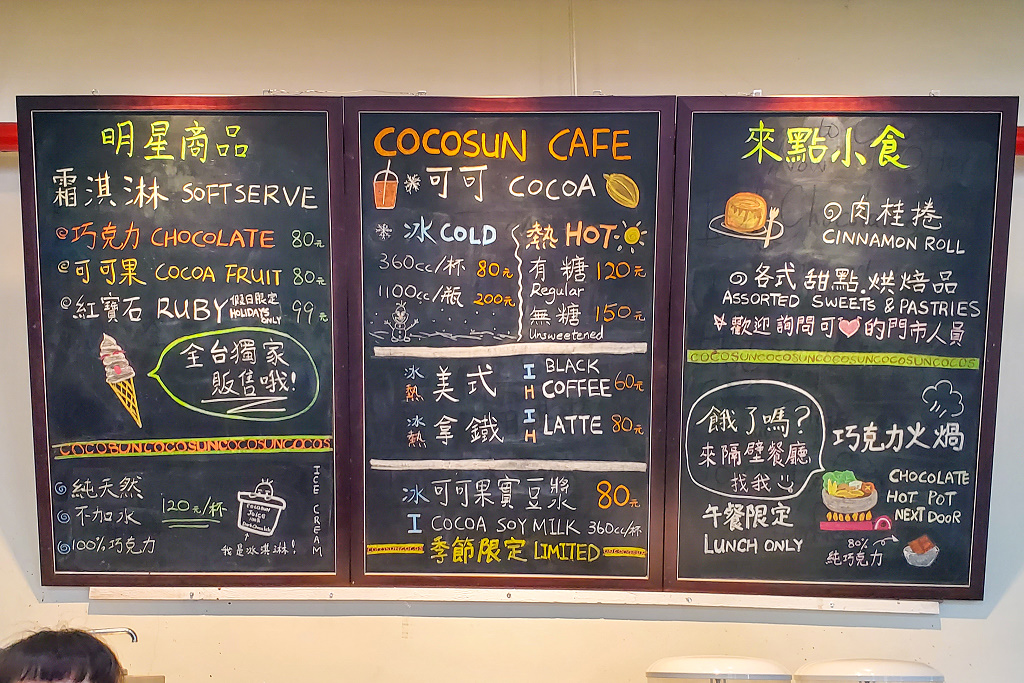 明星商品
霜淇淋 SOFTSERVE
@巧克力 CHOCOLATE 80元
@可可果 COCOA FRUIT 80元
@紅寶石 RUBY 假日限定 HOLIDAYS ONLY 99元
全台獨家
販售哦!
COCOSUNCOCOSUNCOCOSUNCOCOS
純天然
不加水
100%巧克力
120元/杯
我是冰淇淋!
ICE CREAM
COCOSUN CAFE
可可 COCOA
冰 COLD
360cc/杯 80元
1100cc/瓶 200元
熱 HOT
有糖 120元
Regular
無糖 150元
Unsweetened
冰 熱 美式 I H BLACK COFFEE 60元
冰 熱 拿鐵 I H LATTE 80元
冰 可可果實豆漿 80元
I COCOA SOY MILK 360cc/杯
季節限定 LIMITED
來點小食
肉桂捲
CINNAMON ROLL
各式甜點.烘焙品
ASSORTED SWEETS & PASTRIES
歡迎詢問可❤的門市人員
COCOSUNCOCOSUNCOCOSUNCOCOSUNCOCOS
餓了嗎?
來隔壁餐廳
找我
午餐限定
LUNCH ONLY
巧克力火鍋
CHOCOLATE
HOT POT
NEXT DOOR
80%
純巧克力